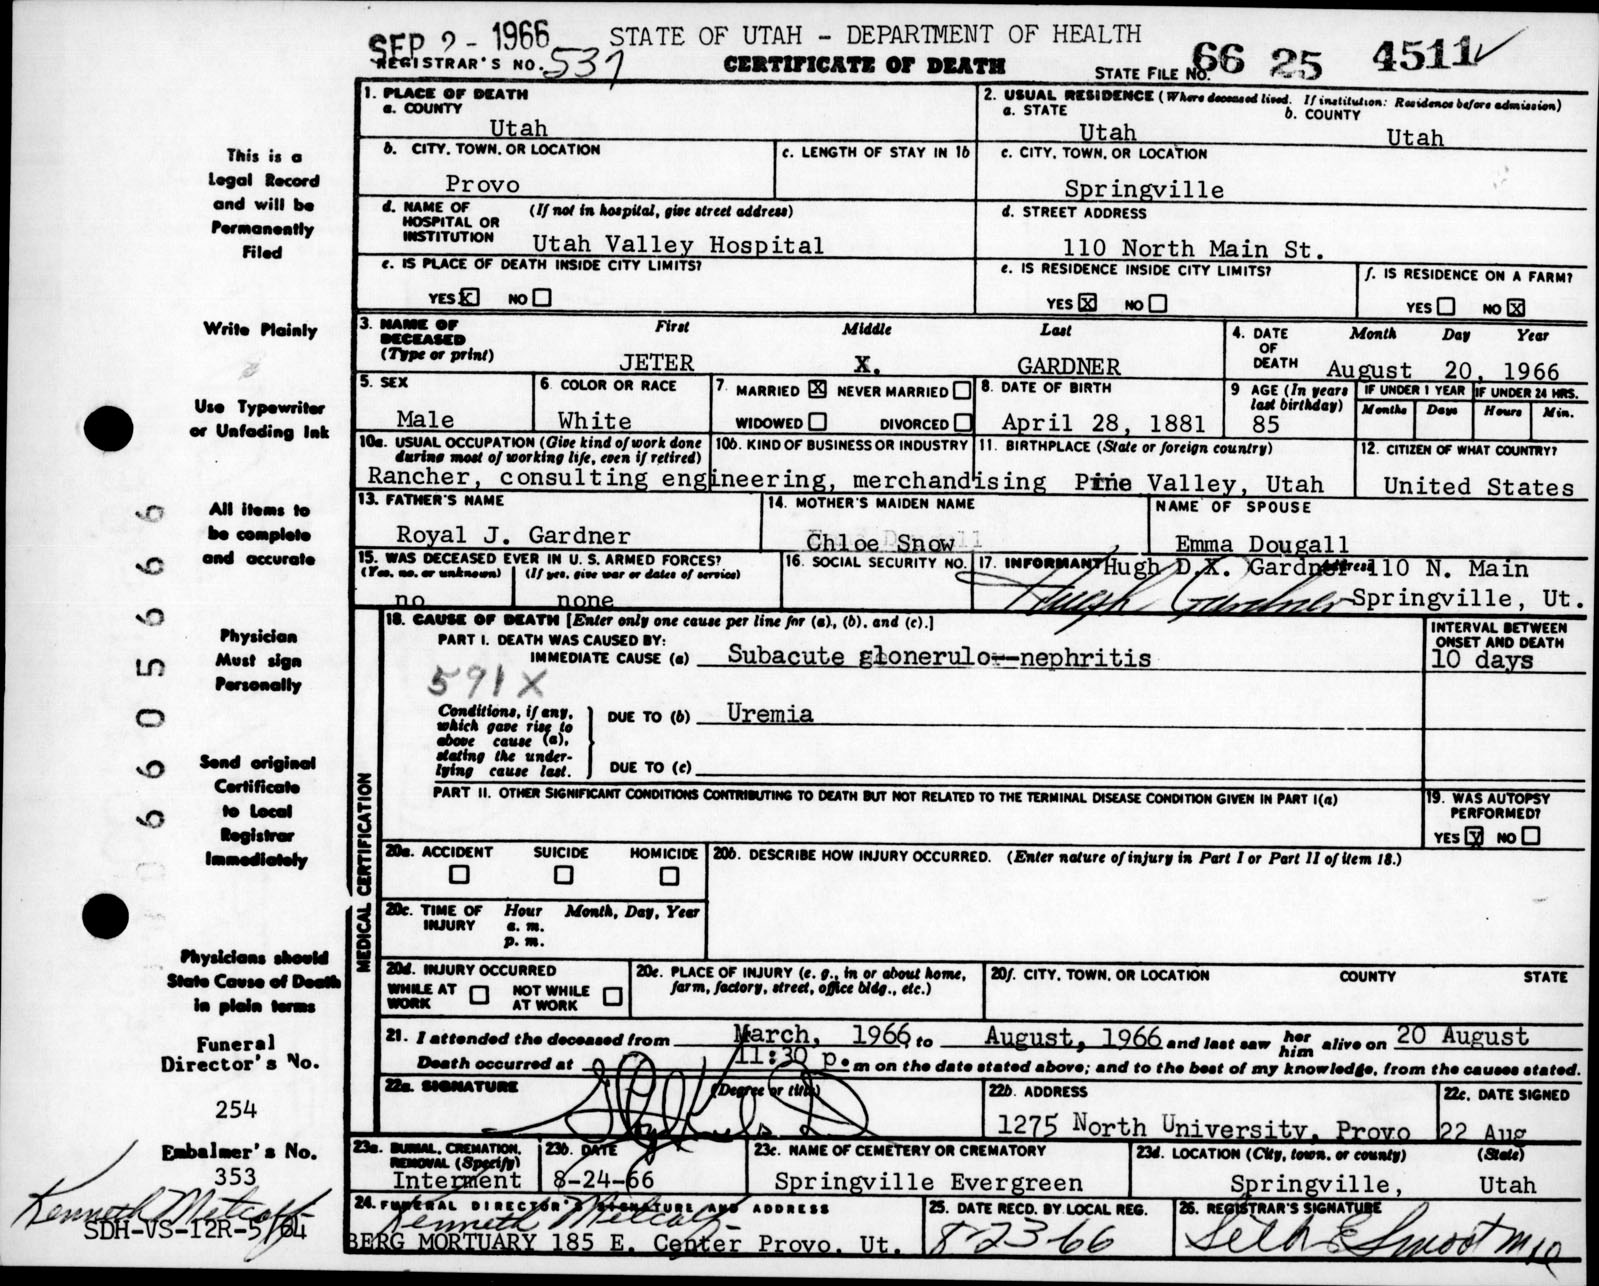 SEP 2 - 1966 STATE OF UTAH - DEPARTMENT OF HEALTH
REGISTRAR'S NO. 537 CERTIFICATE OF DEATH STATE FILE NO. 66 25 4511
1. PLACE OF DEATH
a. COUNTY
Utah
2. USUAL RESIDENCE (Where deceased lived. If institution: Residence before admission)
a. STATE b. COUNTY
Utah Utah
b. CITY, TOWN, OR LOCATION c. LENGTH OF STAY IN 1b
Provo
c. CITY, TOWN, OR LOCATION
Springville
d. NAME OF HOSPITAL OR INSTITUTION (If not in hospital, give street address)
Utah Valley Hospital
d. STREET ADDRESS
110 North Main St.
e. IS PLACE OF DEATH INSIDE CITY LIMITS?
YES X NO
e. IS RESIDENCE INSIDE CITY LIMITS?
YES X NO
f. IS RESIDENCE ON A FARM?
YES NO X
3. NAME OF DECEASED (Type or print) First Middle Last
JETER X. GARDNER
4. DATE OF DEATH Month Day Year
August 20, 1966
5. SEX
Male
6. COLOR OR RACE
White
7. MARRIED X NEVER MARRIED
WIDOWED DIVORCED
8. DATE OF BIRTH
April 28, 1881
9 AGE (In years last birthday)
85
IF UNDER 1 YEAR IF UNDER 24 HRS.
Months Days Hours Min.
10a. USUAL OCCUPATION (Give kind of work done during most of working life, even if retired) 10b. KIND OF BUSINESS OR INDUSTRY
Rancher, consulting engineering, merchandising
11. BIRTHPLACE (State or foreign country)
Pine Valley, Utah
12. CITIZEN OF WHAT COUNTRY?
United States
13. FATHER'S NAME
Royal J. Gardner
14. MOTHER'S MAIDEN NAME
Chloe Snow
NAME OF SPOUSE
Emma Dougall
15. WAS DECEASED EVER IN U. S. ARMED FORCES?
(Yes, no, or unknown) (If yes, give war or dates of service)
no none
16. SOCIAL SECURITY NO.
17. INFORMANT Hugh D.X. Gardner Address 110 N. Main
Hugh Gardner Springville, Ut.
18. CAUSE OF DEATH [Enter only one cause per line for (a), (b), and (c).]
PART I. DEATH WAS CAUSED BY:
IMMEDIATE CAUSE (a) Subacute glonerulo--nephritis
INTERVAL BETWEEN ONSET AND DEATH
10 days
591X
Conditions, if any, which gave rise to above cause (a), stating the underlying cause last.
DUE TO (b) Uremia
DUE TO (c)
PART II. OTHER SIGNIFICANT CONDITIONS CONTRIBUTING TO DEATH BUT NOT RELATED TO THE TERMINAL DISEASE CONDITION GIVEN IN PART I(a)
19. WAS AUTOPSY PERFORMED?
YES X NO
MEDICAL CERTIFICATION
20a. ACCIDENT SUICIDE HOMICIDE
20b. DESCRIBE HOW INJURY OCCURRED. (Enter nature of injury in Part I or Part II of item 18.)
20c. TIME OF INJURY Hour Month, Day, Year
a. m.
p. m.
20d. INJURY OCCURRED
WHILE AT WORK NOT WHILE AT WORK
20e. PLACE OF INJURY (e. g., in or about home, farm, factory, street, office bldg., etc.)
20f. CITY, TOWN, OR LOCATION COUNTY STATE
21. I attended the deceased from March, 1966 to August, 1966 and last saw her him alive on 20 August
Death occurred at 11:30 p. m on the date stated above; and to the best of my knowledge, from the causes stated.
22a. SIGNATURE (Degree or title)
22b. ADDRESS
1275 North University, Provo
22c. DATE SIGNED
22 Aug
23a. BURIAL, CREMATION, REMOVAL (Specify)
Interment
23b. DATE
8-24-66
23c. NAME OF CEMETERY OR CREMATORY
Springville Evergreen
23d. LOCATION (City, town, or county) (State)
Springville, Utah
24. FUNERAL DIRECTOR'S SIGNATURE AND ADDRESS
Kenneth Metcalf
BERG MORTUARY 185 E. Center Provo, Ut.
25. DATE RECD. BY LOCAL REG.
8-23-66
26. REGISTRAR'S SIGNATURE
This is a
Legal Record
and will be
Permanently
Filed
Write Plainly
Use Typewriter
or Unfading Ink
All items to
be complete
and accurate
Physician
Must sign
Personally
Send original
Certificate
to Local
Registrar
Immediately
Physicians should
State Cause of Death
in plain terms
Funeral
Director's No.
254
Embalmer's No.
353
Kenneth Metcalf
SDH-VS-12R-5/64